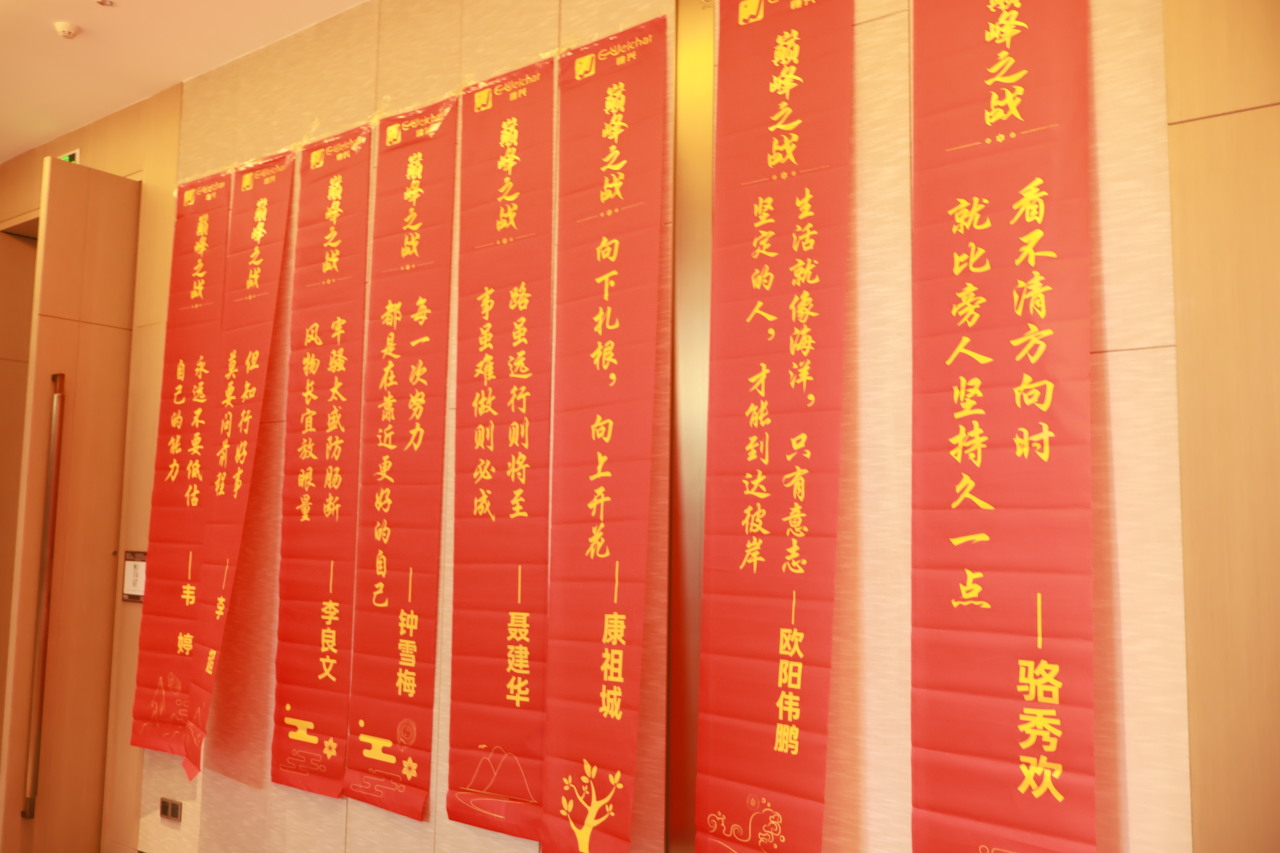 E-Weichai
潍柴
巅峰之战
永远不要低估
自己的能力
—韦 婷
巅峰之战
但知行好事
莫要问前程
—李
巅峰之战
牢骚太盛防肠断
风物长宜放眼量
—李良文
巅峰之战
每一次努力
都是在靠近更好的自己
—钟雪梅
E-Weichai
巅峰之战
路虽远行则将至
事虽难做则必成
—聂建华
E-Weichai
巅峰之战
向下扎根，向上开花
—康祖城
巅峰之战
生活就像海洋，只有意志
坚定的人，才能到达彼岸
—欧阳伟鹏
巅峰之战
看不清方向时
就比旁人坚持久一点
—骆秀欢